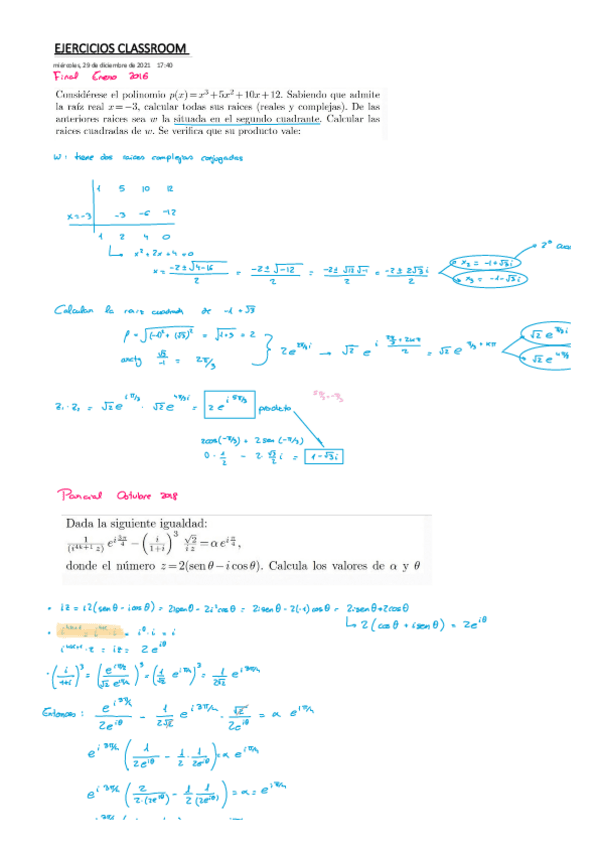 EJERCICIOS CLASSROOM
miércoles, 29 de diciembre de 2021 17:40
Final Enero 2016
Considérese el polinomio p(x)=x³+5x²+10x+12. Sabiendo que admite
la raíz real x=−3, calcular todas sus raices (reales y complejas). De las
anteriores raices sea w la situada en el segundo cuadrante. Calcular las
raices cuadradas de w. Se verifica que su producto vale:
w: tiene dos raices complejas conjugadas
1 5 10 12
x=-3 -3 -6 -12
1 2 4 0
x²+2x+4=0
x = (-2±√(4-16))/2 = (-2±√-12)/2 = (-2±√12 √-1)/2 = (-2±2√3 i)/2
x₂ = -1+√3i
x₃ = -1-√3i
Calculan la raiz cuadrada de -1+√3
ρ = √((-1)²+(√3)²) = √(1+3) = 2
arctg √3/-1 = 2π/3
2e^(2π/3 i) → √2 e^(i (2π/3+2kπ)/2) = √2 e^(π/3+kπ)
√2 e^(π/3 i)
√2 e^(4π/3
z₁·z₂ = √2 e^(iπ/3) · √2 e^(4π/3 i) = 2e^(i5π/3) producto
5π/3=-π/3
2cos(-π/3) + 2sen(-π/3)
0·1/2 - 2·√3/2 i = 1-√3i
Parcial Octubre 2018
Dada la siguiente igualdad:
1/(i^(4k+1) z) e^(i 3π/4) − (i/(1+i))³ √2/(i z) = α e^(i π/4),
donde el número z=2(sen θ − i cos θ). Calcula los valores de α y θ
• iz = i2(senθ - icosθ) = 2isenθ - 2i²cosθ = 2isenθ - 2(-1)cosθ = 2isenθ+2cosθ
↳ 2(cosθ + isenθ) = 2e^(iθ)
= i⁰·i = i
i^(4k+1)·z = iz = 2e^(iθ)
• (i/(1+i))³ = (e^(iπ/2)/(√2 e^(iπ/4)))³ = (1/√2 e^(iπ/4))³ = 1/(2√2) e^(i3π/4)
Entonces: e^(i3π/4)/(2e^(iθ)) - 1/(2√2) e^(i3π/4) · √2/(2e^(iθ)) = α e^(iπ/4)
e^(i3π/4) (1/(2e^(iθ)) - 1/2 · 1/(2e^(iθ))) = α e^(iπ/4)
e^(i3π/4) (2/(2·(2e^(iθ))) - 1/2 · 1/(2e^(iθ))) = α = e^(iπ/4)